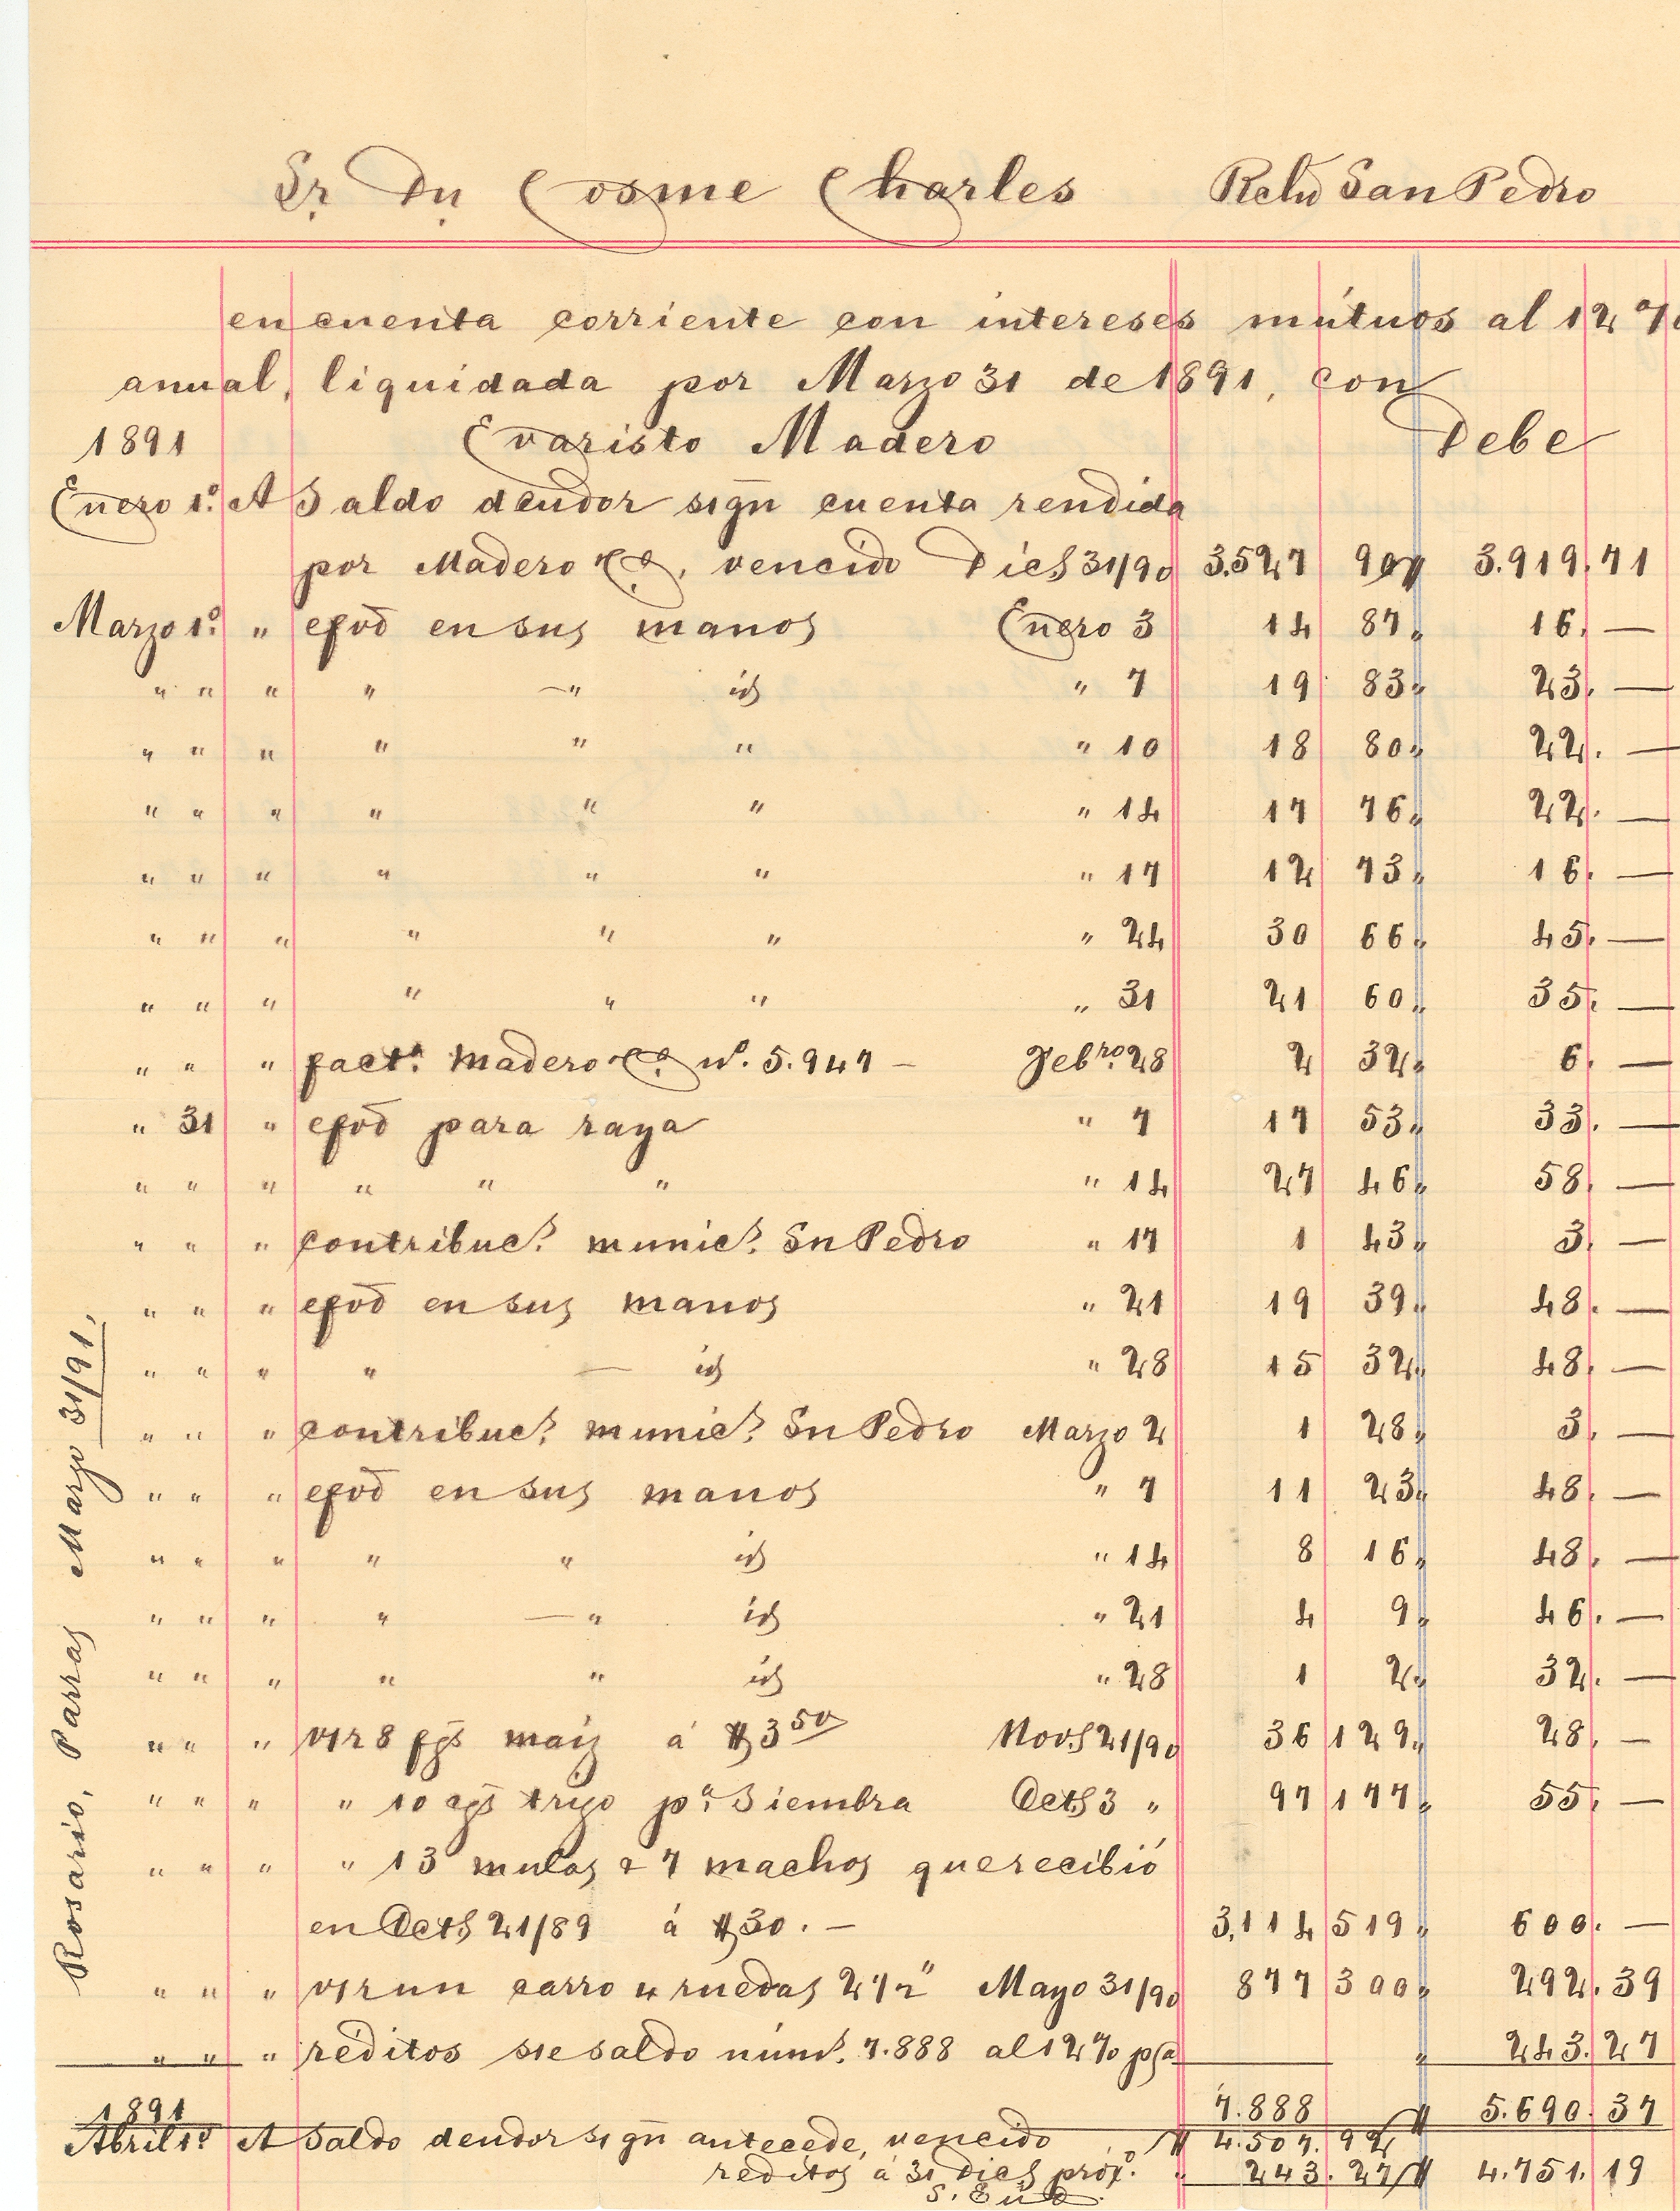 Sr. Dn. Cosme Charles Reln San Pedro
en cuenta corriente con intereses mútuos al 12 %
anual, liquidada por Marzo 31 de 1891, con
1891 Evaristo Madero Debe
Enero 1º. A Saldo deudor sign cuenta rendida
por Madero & Cº., vencido Dics 31/90 3.527 90 $ 3.919.71
Marzo 1º. " efvo en sus manos Enero 3 14 87 " 16. —
" " " " — " id " 7 19 83 " 23. —
" " " " " " " 10 18 80 " 22. —
" " " " " " " 14 17 76 " 22. —
" " " " " " " 17 12 73 " 16. —
" " " " " " " 24 30 66 " 45. —
" " " " " " " 31 21 60 " 35. —
" " " factª. Madero & Cº. nº. 5.947 — Febro. 28 2 32 " 6. —
" 31 " efvo para raya " 7 17 53 " 33. —
" " " " " " " 14 27 46 " 58. —
" " " contribucs. munics. Sn Pedro " 17 1 43 " 3. —
" " " efvo en sus manos " 21 19 39 " 48. —
" " " " — id " 28 15 32 " 48. —
" " " contribucs. munics. Sn Pedro Marzo 2 1 28 " 3. —
" " " efvo en sus manos " 7 11 23 " 48. —
" " " " " id " 14 8 16 " 48. —
" " " " — " id " 21 4 9 " 46. —
" " " " " id " 28 1 2 " 32. —
" " " v/r 8 fgs maiz á $3 50 Novs 21/90 36 129 " 28. —
" " " " 10 cgs trigo pª. Siembra Octs 3 " 97 177 " 55. —
" " " " 13 mulas & 7 machos que recibió
en Octs 21/89 á $30. — 3,114 519 " 600. —
" " " v/r un carro 4 ruedas 2 1/2" Mayo 31/90 877 300 " 292.39
" " " réditos s/e saldo núms. 7.888 al 12 % psa " 243.27
7.888 $ 5.690.37
1891
Abril 1º A Saldo deudor sign antecede, vencido $ 4.507.92
reditos á 31 Dics próxº. " 243.27 $ 4.751.19
S. E ú O.
Rosario, Parras Marzo 31/91.